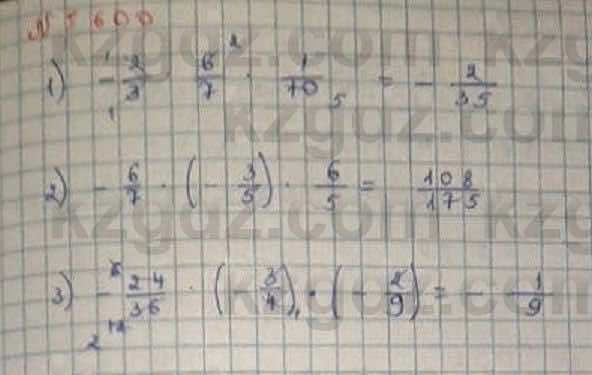 № 600
1) - 2/3 · 6/7 · 1/10 = - 2/35
2) - 6/7 · (- 3/5) · 6/5 = 108/175
3) - 24/36 · (- 3/4) · (- 2/9) = - 1/9
kzgdz.com